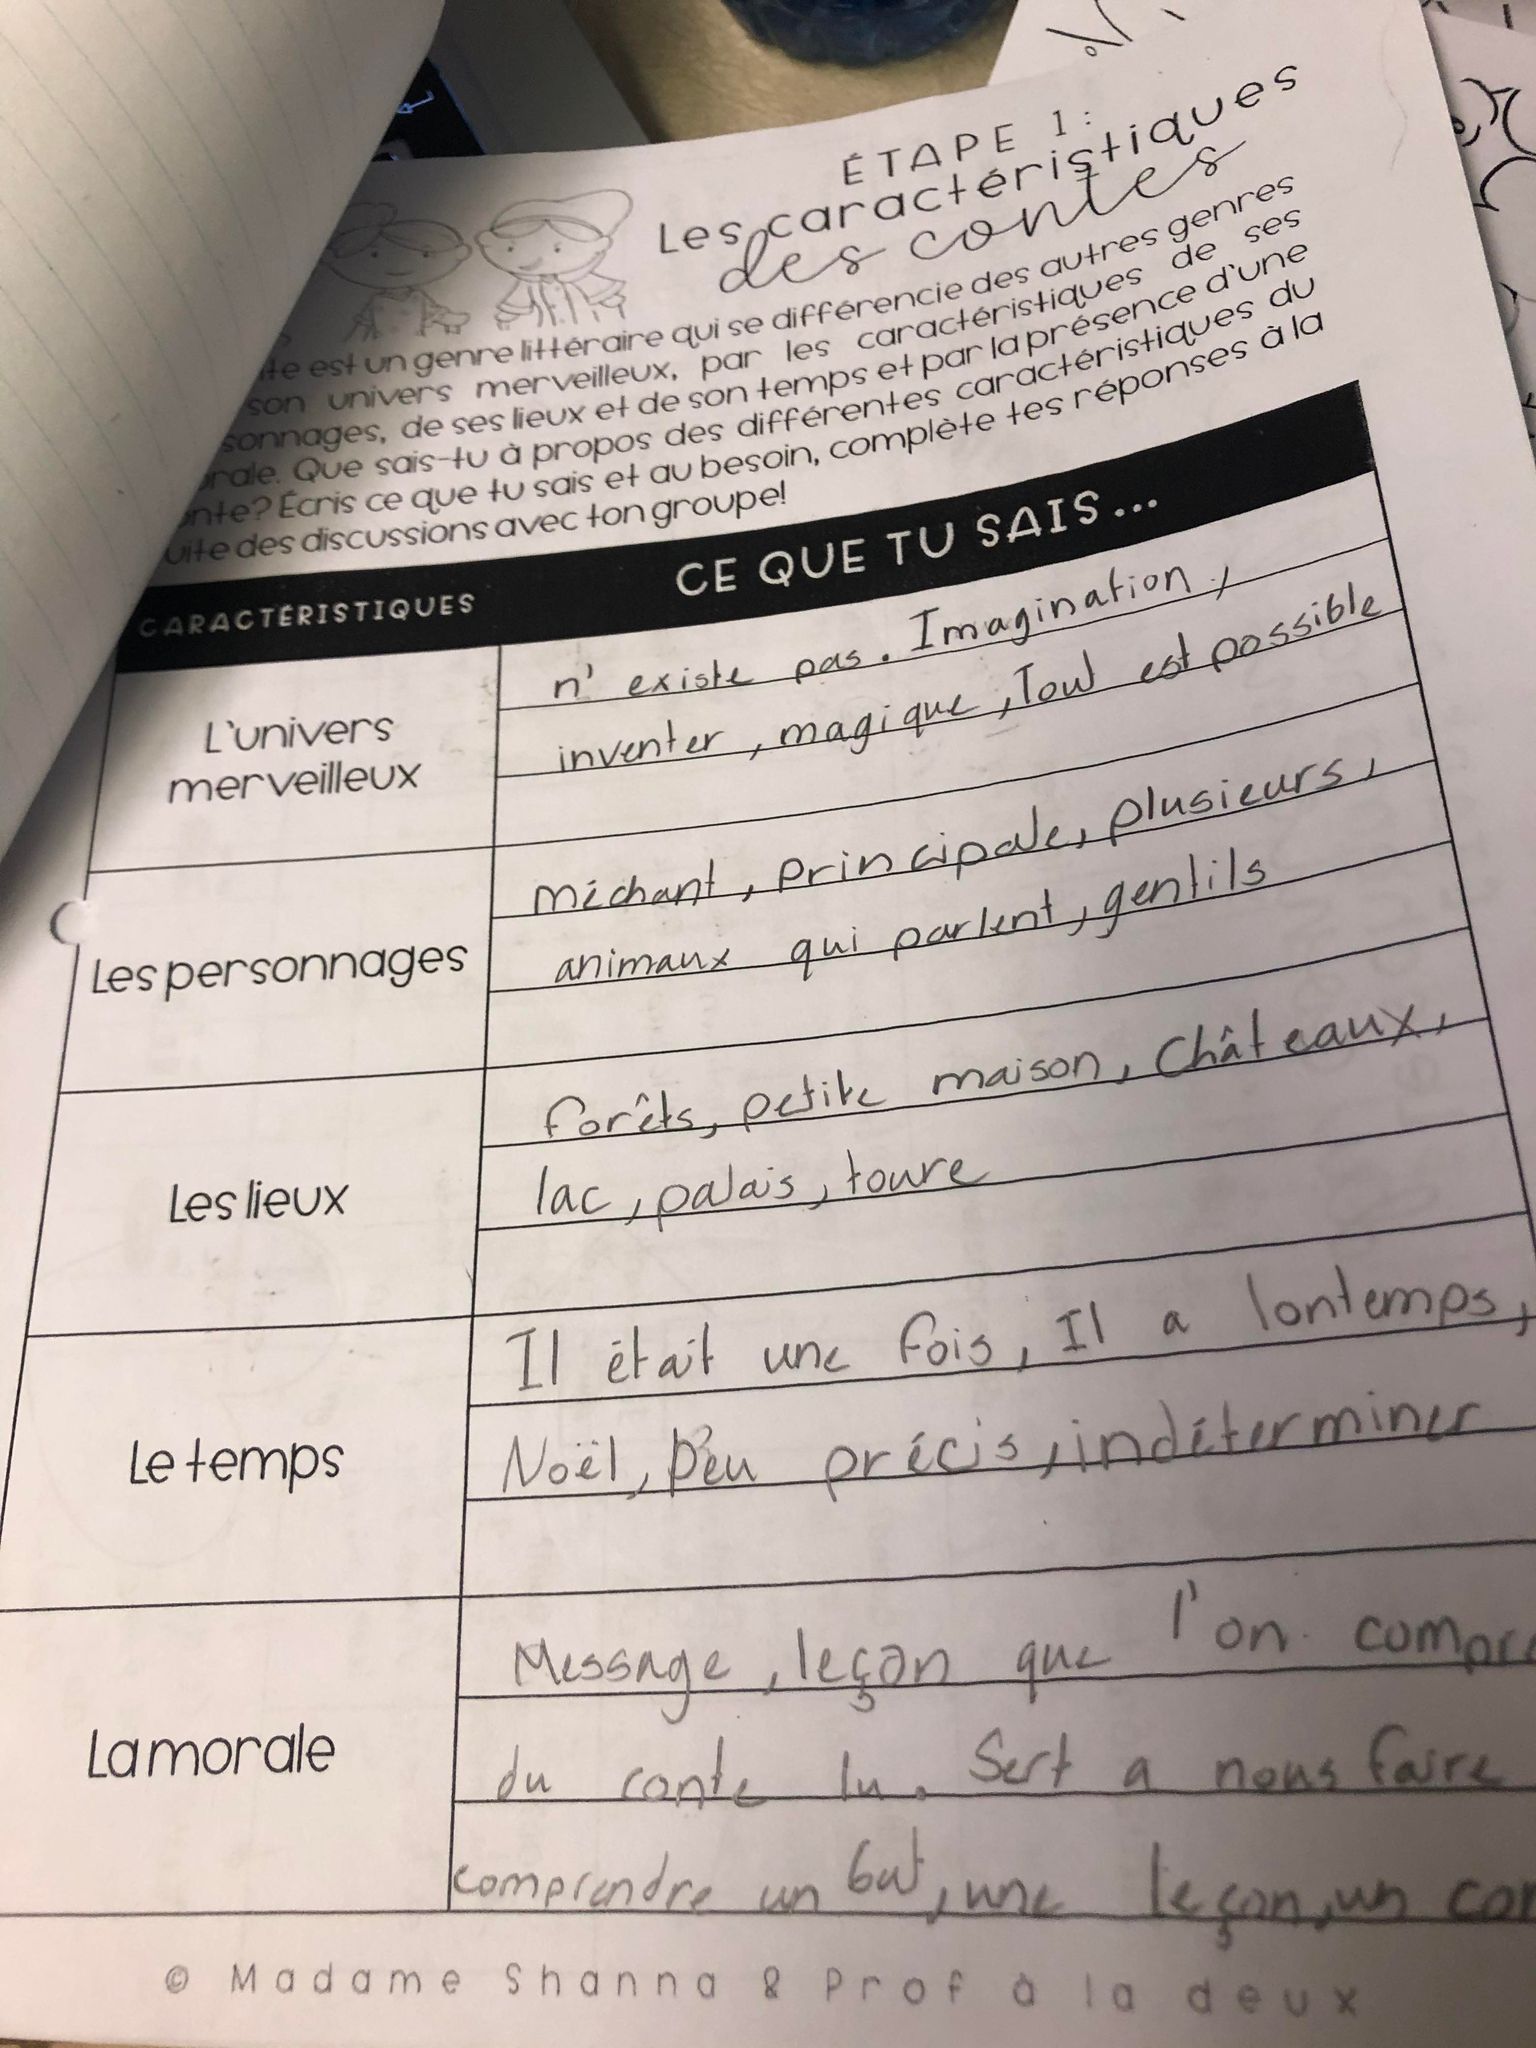 ÉTAPE 1:
Les caractéristiques
des contes
est un genre littéraire qui se différencie des autres genres
son univers merveilleux, par les caractéristiques de ses
sonnages, de ses lieux et de son temps et par la présence d'une
rale. Que sais-tu à propos des différentes caractéristiques du
nte? Écris ce que tu sais et au besoin, complète tes réponses à la
uite des discussions avec ton groupe!
CARACTÉRISTIQUES
CE QUE TU SAIS...
L'univers
merveilleux
n'existe pas. Imagination,
inventer, magique, Tout est possible
Les personnages
Méchant, principale, plusieurs,
animaux qui parlent, gentils
Les lieux
forêts, petite maison, Châteaux,
lac, palais, toure
Le temps
Il était une fois, Il a lontemps,
Noël, Peu précis, indéterminer
La morale
Message, leçon que l'on compre
du conte lu. Sert a nous faire
comprendre un but, une leçon, un con
© Madame Shanna & Prof à la deux